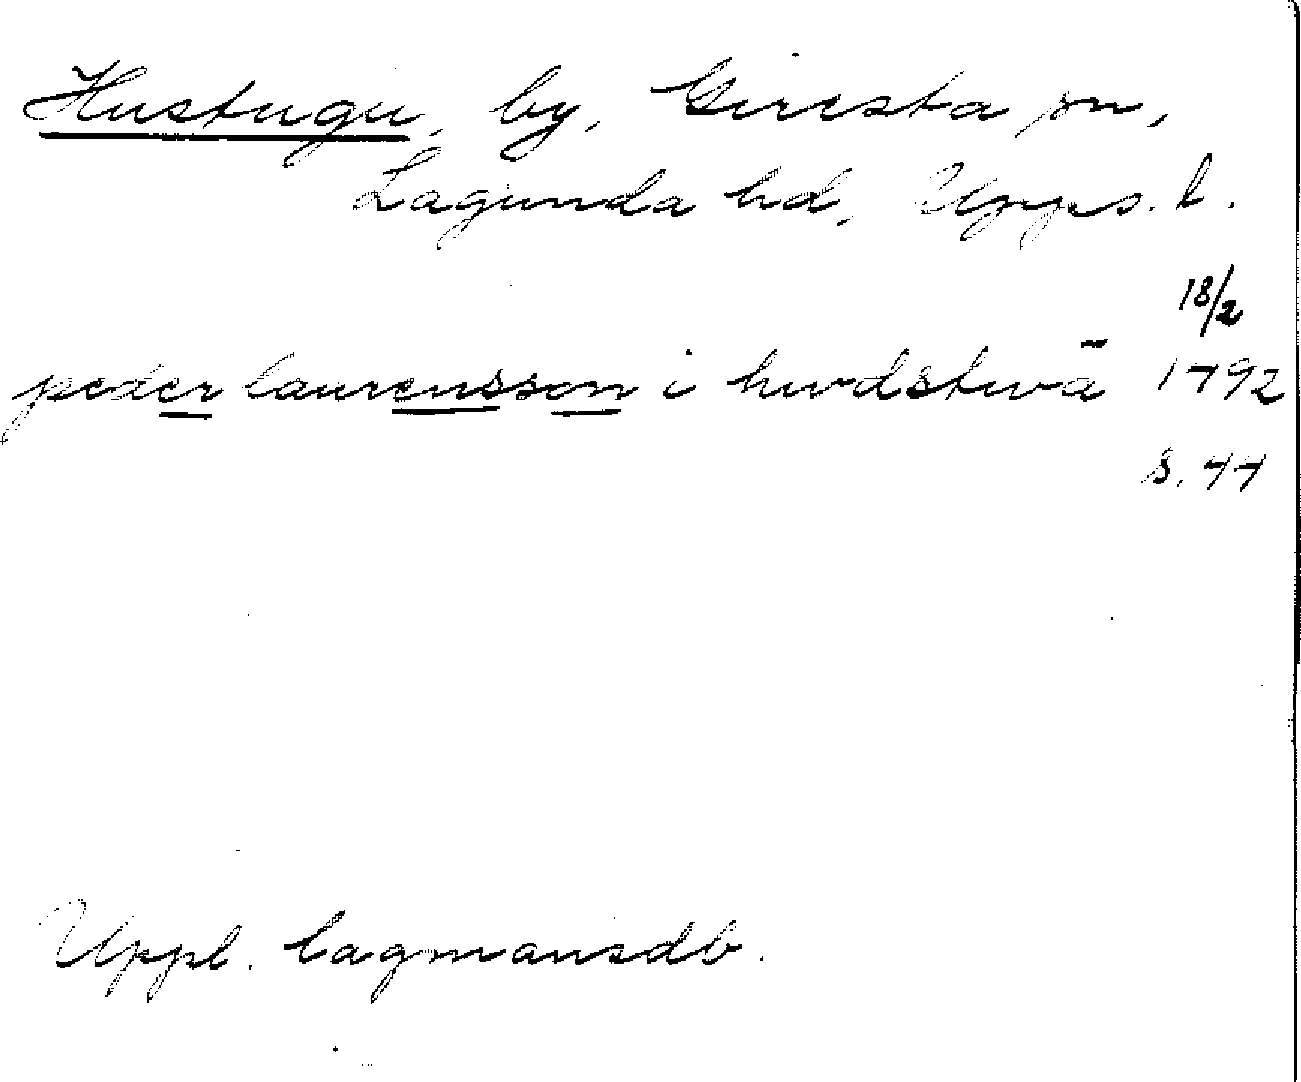 Hustugu, by, Giresta sn,
Lagunda hd, Upps. l.
18/2
peder laurensson i hwdstwã 1492
s. 44
Uppl. lagmansdb.